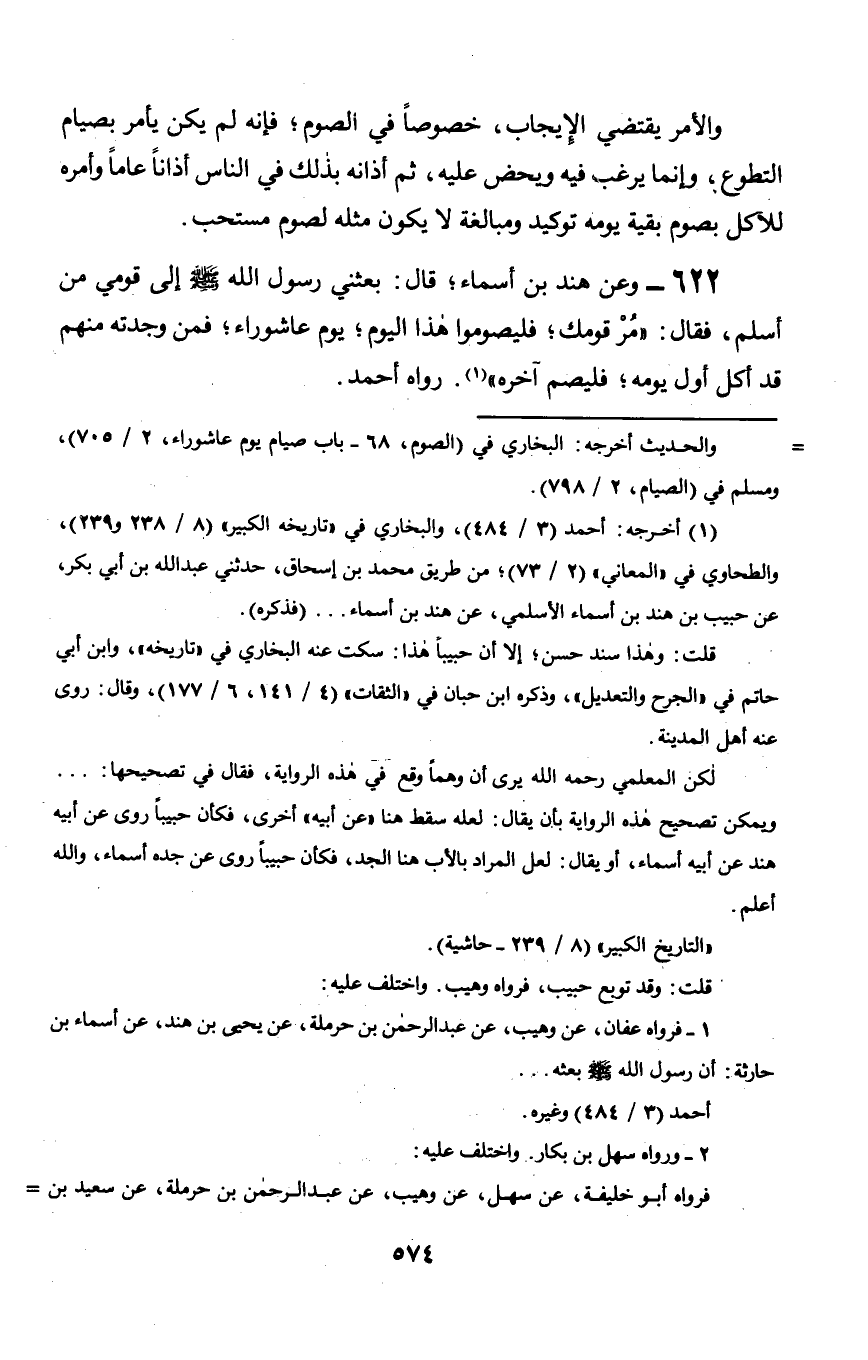 والأمر يقتضي الإِيجاب، خصوصاً في الصوم؛ فإنه لم يكن يأمر بصيام
التطوع، وإنما يرغب فيه ويحض عليه، ثم أذانه بذٰلك في الناس أذاناً عاماً وأمره
للآكل بصوم بقية يومه توكيد ومبالغة لا يكون مثله لصوم مستحب.
٦٢٢ ـ وعن هند بن أسماء؛ قال: بعثني رسول الله ﷺ إلى قومي من
أسلم، فقال: «مُرْ قومك؛ فليصوموا هٰذا اليوم؛ يوم عاشوراء؛ فمن وجدته منهم
قد أكل أول يومه؛ فليصم آخره»(١). رواه أحمد.
= والحديث أخرجه: البخاري في (الصوم، ٦٨ ـ باب صيام يوم عاشوراء، ٢ / ٧٠٥)،
ومسلم في (الصيام، ٢ / ٧٩٨).
(١) أخرجه: أحمد (٣ / ٤٨٤)، والبخاري في «تاريخه الكبير» (٨ / ٢٣٨ و٢٣٩)،
والطحاوي في «المعاني» (٢ / ٧٣)؛ من طريق محمد بن إسحاق، حدثني عبدالله بن أبي بكر،
عن حبيب بن هند بن أسماء الأسلمي، عن هند بن أسماء... (فذكره).
قلت: وهٰذا سند حسن؛ إلا أن حبيباً هٰذا: سكت عنه البخاري في «تاريخه»، وابن أبي
حاتم في «الجرح والتعديل»، وذكره ابن حبان في «الثقات» (٤ / ١٤١، ٦ / ١٧٧)، وقال: روى
عنه أهل المدينة.
لٰكن المعلمي رحمه الله يرى أن وهماً وقع في هٰذه الرواية، فقال في تصحيحها: ...
ويمكن تصحيح هٰذه الرواية بأن يقال: لعله سقط هنا «عن أبيه» أخرى، فكأن حبيباً روى عن أبيه
هند عن أبيه أسماء، أو يقال: لعل المراد بالأب هنا الجد، فكأن حبيباً روى عن جده أسماء، والله
أعلم.
«التاريخ الكبير» (٨ / ٢٣٩ ـ حاشية).
قلت: وقد توبع حبيب، فرواه وهيب. واختلف عليه:
١ ـ فرواه عفان، عن وهيب، عن عبدالرحمٰن بن حرملة، عن يحيى بن هند، عن أسماء بن
حارثة: أن رسول الله ﷺ بعثه...
أحمد (٣ / ٤٨٤) وغيره.
٢ ـ ورواه سهل بن بكار. واختلف عليه:
فرواه أبو خليفة، عن سهل، عن وهيب، عن عبدالرحمٰن بن حرملة، عن سعيد بن =
٥٧٤